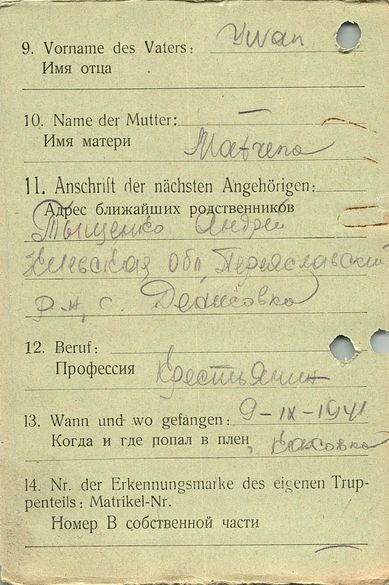 9. Vorname des Vaters: Ywan
Имя отца
10. Name der Mutter:
Имя матери Matrena
11. Anschrift der nächsten Angehörigen:
Адрес ближайших родственников
Тыщенко Андрей
Киевская обл, Переяславский
р-н, с. Денисовка
12. Beruf:
Профессия Крестьянин
13. Wann und wo gefangen: 9-IX-1941
Когда и где попал в плен, Каховка
14. Nr. der Erkennungsmarke des eigenen Trup-
penteils: Matrikel-Nr.
Номер В собственной части